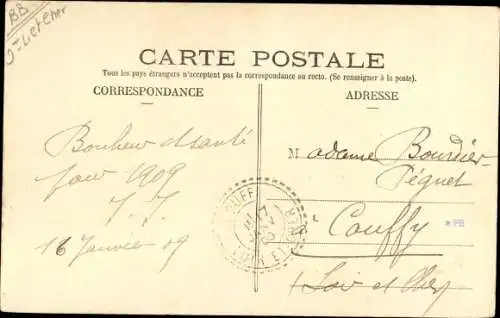 BB
CARTE POSTALE
Tous les pays étrangers n'acceptent pas la correspondance au recto. (Se renseigner à la poste).
CORRESPONDANCE
ADRESSE
Bonheur et santé
pour 1909
J. J.
16 Janvier 09
Madame Bourdier
Péguet
à Couffy
Loir et Cher
COUFFY
LOIR ET CHER
*PH